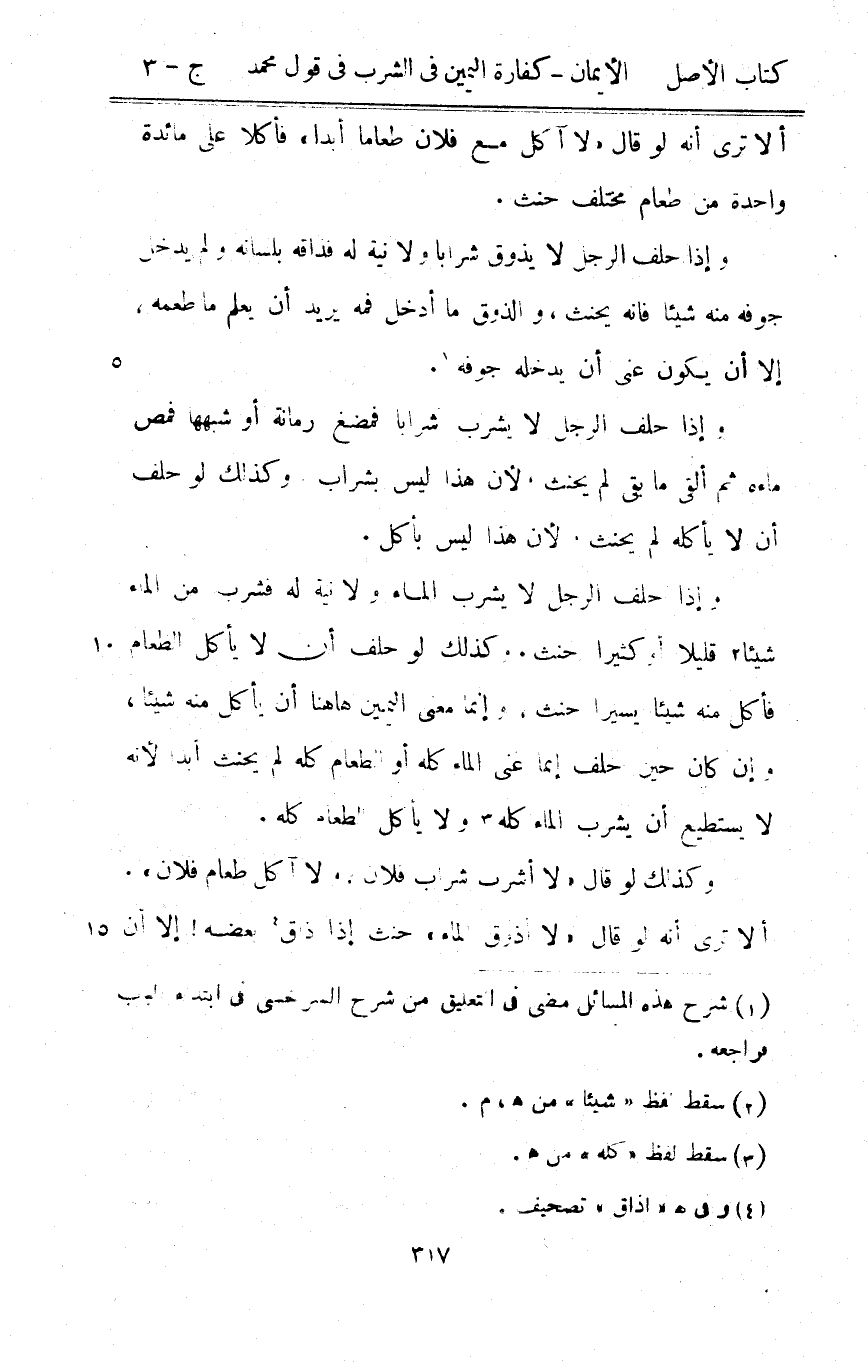 كتاب الأصل الأيمان - كفارة اليمين فى الشرب فى قول محمد ج - ٣
ألا ترى أنه لو قال « لا آكل مع فلان طعاما أبدا » فأكلا على مائدة
واحدة من طعام مختلف حنث .
و إذا حلف الرجل لا يذوق شرابا و لا نية له فذاقه بلسانه و لم يدخل
جوفه منه شيئا فانه يحنث ، و الذوق ما أدخل فمه يريد أن يعلم ما طعمه ،
إلا أن يكون عنى أن يدخله جوفه ١ . ٥
و إذا حلف الرجل لا يشرب شرابا فمضغ رمانة أو شبهها فمص
ماءه ثم ألقى ما بقى لم يحنث ، لأن هذا ليس بشراب . وكذلك لو حلف
أن لا يأكله لم يحنث ، لأن هذا ليس بأكل .
و إذا حلف الرجل لا يشرب الماء و لا نية له فشرب من الماء
شيئا٢ قليلا أو كثيرا حنث . وكذلك لو حلف أن لا يأكل الطعام ١٠
فأكل منه شيئا يسيرا حنث ، و إنما معنى اليمين هاهنا أن يأكل منه شيئا ،
و إن كان حين حلف إنما عنى الماء كله أو الطعام كله لم يحنث أبدا لأنه
لا يستطيع أن يشرب الماء كله٣ و لا يأكل الطعام كله .
وكذلك لو قال « لا أشرب شراب فلان ، و لا آكل طعام فلان » .
ألا ترى أنه لو قال « لا أذوق الماء » حنث إذا ذاق٤ بعضه ! إلا أن ١٥
(١) شرح هذه المسائل مضى فى التعليق من شرح السرخسى فى ابتداء الباب
فراجعه .
(٢) سقط لفظ « شيئا » من ه ، م .
(٣) سقط لفظ « كله » من ه .
(٤) و فى ه « اذاق » تصحيف .
٣١٧